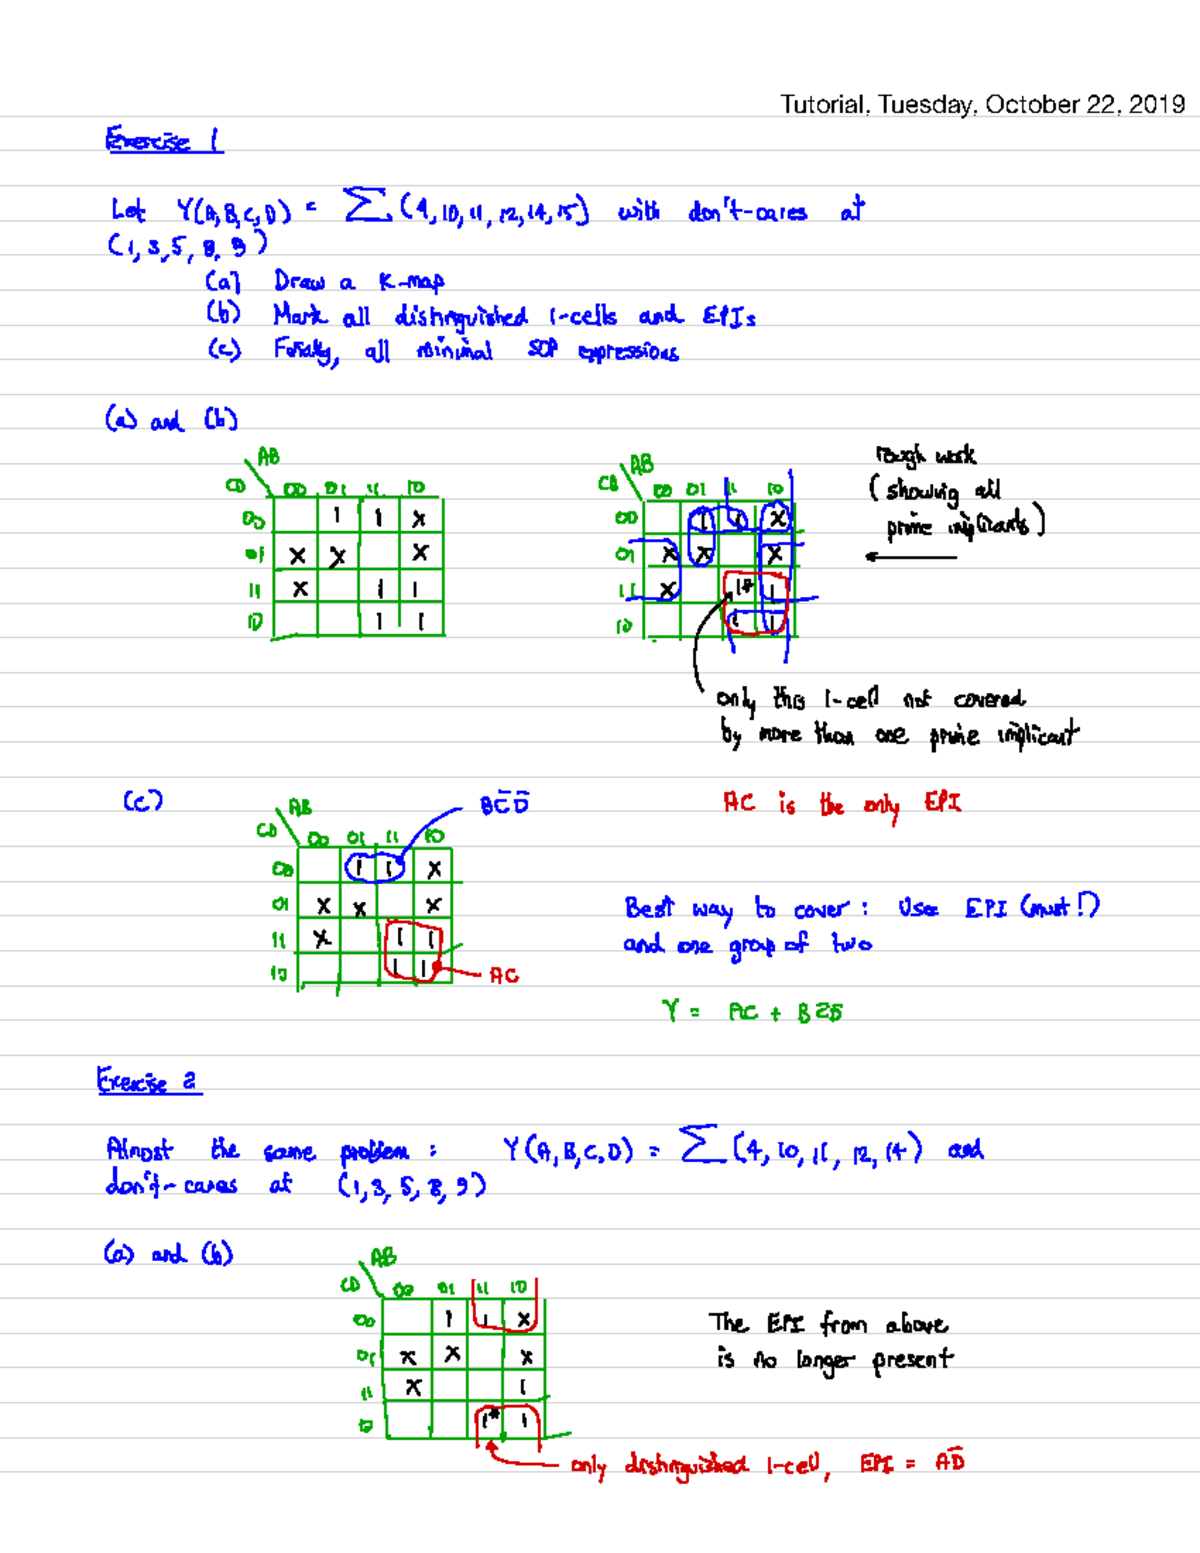 Tutorial, Tuesday, October 22, 2019
Exercise 1
Let Y(A,B,C,D) = ∑(4,10,11,12,14,15) with don't-cares at
(1,3,5,8,9)
(a) Draw a K-map
(b) Mark all distinguished 1-cells and EPIs
(c) Finally, all minimal SOP expressions
(a) and (b)
AB
CD 00 01 11 10
00 1 1 X
01 X X X
11 X 1 1
10 1 1
AB
CD 00 01 11 10
00 1 1 X
01 X X X
11 X 1* 1
10 1 1
rough work
(showing all
prime implicants)
only this 1-cell not covered
by more than one prime implicant
AC is the only EPI
(c)
AB
CD 00 01 11 10
00 1 1 X
01 X X X
11 X 1 1
10 1 1
BC̅D̅
AC
Best way to cover: Use EPI (must!)
and one group of two
Y = AC + BC̅D̅
Exercise 2
Almost the same problem: Y(A,B,C,D) = ∑(4,10,11,12,14) and
don't-cares at (1,3,5,8,9)
(a) and (b)
AB
CD 00 01 11 10
00 1 1 X
01 X X X
11 X 1
10 1* 1
The EPI from above
is no longer present
only distinguished 1-cell, EPI = AD̅